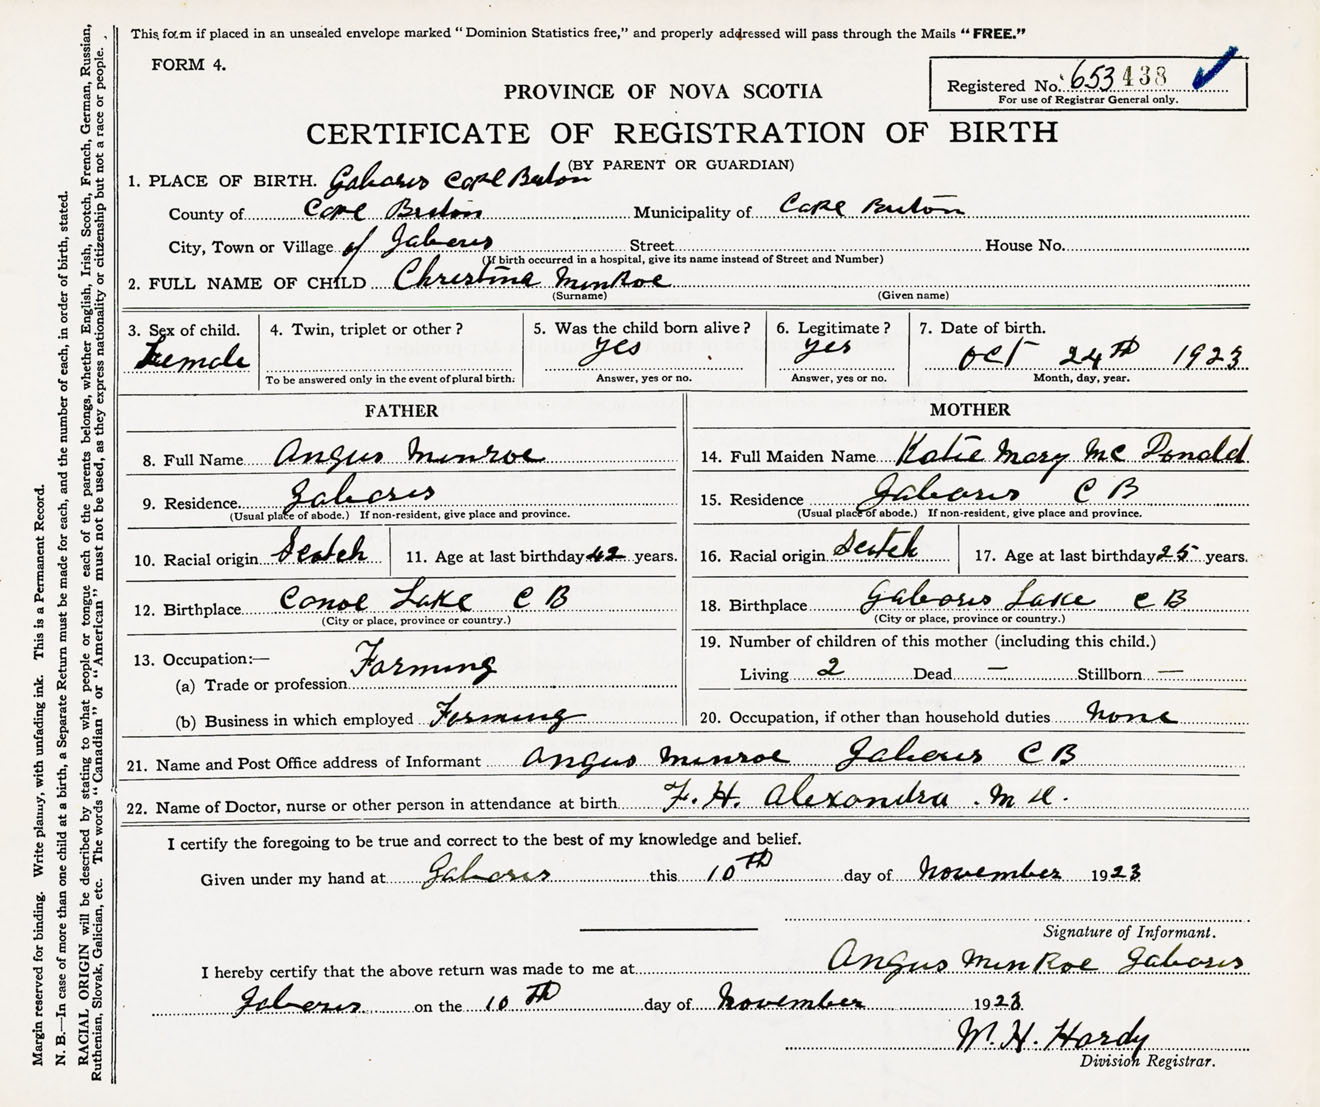 This form if placed in an unsealed envelope marked "Dominion Statistics free," and properly addressed will pass through the Mails "FREE."
FORM 4.
Registered No. 653438
For use of Registrar General only.
PROVINCE OF NOVA SCOTIA
CERTIFICATE OF REGISTRATION OF BIRTH
(BY PARENT OR GUARDIAN)
1. PLACE OF BIRTH. Gabarus Cape Breton
County of Cape Breton Municipality of Cape Breton
City, Town or Village of Gabarus Street House No.
(If birth occurred in a hospital, give its name instead of Street and Number)
2. FULL NAME OF CHILD Christina MunRoe
(Surname) (Given name)
3. Sex of child. 4. Twin, triplet or other? 5. Was the child born alive? 6. Legitimate? 7. Date of birth.
Female yes yes Oct 24th 1923
To be answered only in the event of plural birth. Answer, yes or no. Answer, yes or no. Month, day, year.
FATHER MOTHER
8. Full Name Angus Munroe 14. Full Maiden Name Katie Mary Mc Donald
9. Residence Gabarus 15. Residence Gabarus C B
(Usual place of abode.) If non-resident, give place and province. (Usual place of abode.) If non-resident, give place and province.
10. Racial origin Scotch 11. Age at last birthday 42 years. 16. Racial origin Scotch 17. Age at last birthday 25 years.
12. Birthplace Canoe Lake C B 18. Birthplace Gabarus Lake C B
(City or place, province or country.) (City or place, province or country.)
13. Occupation:— 19. Number of children of this mother (including this child.)
(a) Trade or profession Farming Living 2 Dead — Stillborn —
(b) Business in which employed Farming 20. Occupation, if other than household duties None
21. Name and Post Office address of Informant Angus Munroe Gabarus C B
22. Name of Doctor, nurse or other person in attendance at birth F. H. Alexandra . M D.
I certify the foregoing to be true and correct to the best of my knowledge and belief.
Given under my hand at Gabarus this 10th day of November 1923
Signature of Informant.
Angus MunRoe Gabarus
I hereby certify that the above return was made to me at
Gabarus on the 10th day of November 1923.
W. H. Hardy
Division Registrar.
Margin reserved for binding. Write plainly, with unfading ink. This is a Permanent Record.
N. B.—In case of more than one child at a birth, a Separate Return must be made for each, and the number of each, in order of birth, stated.
RACIAL ORIGIN will be described by stating to what people or tongue each of the parents belongs, whether English, Irish, Scotch, French, German, Russian,
Ruthenian, Slovak, Galician, etc. The words "Canadian" or "American" must not be used, as they express nationality or citizenship but not a race or people.